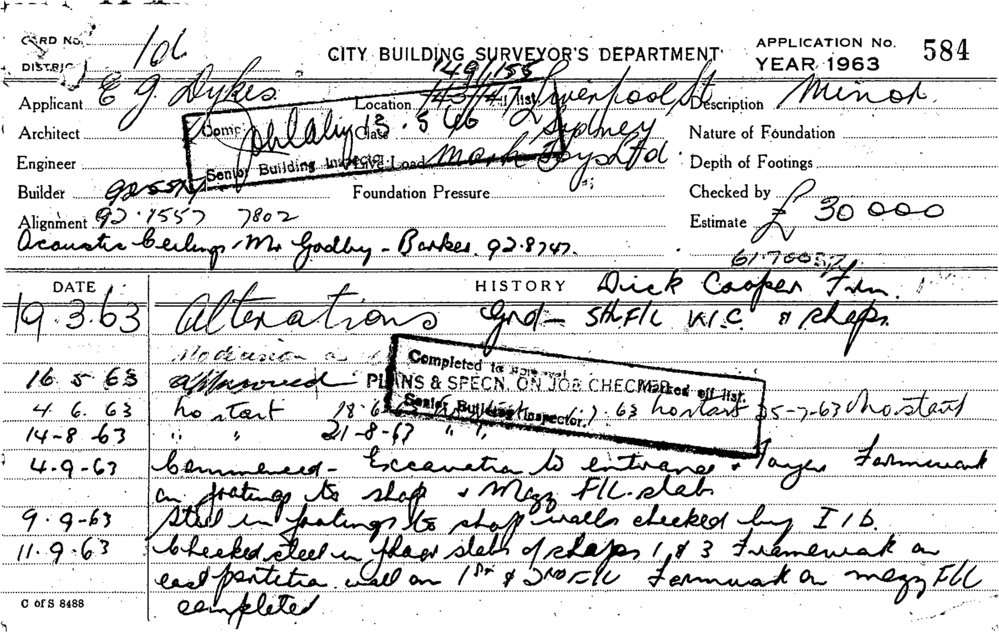 CARD No. 106
DISTRICT
CITY BUILDING SURVEYOR'S DEPARTMENT
APPLICATION No. 584
YEAR 1963
149/155
Applicant E G Dykes Location 143/147 Liverpool St Description Minor
Architect Sydney Nature of Foundation
Engineer Live Load Mark Foys Ltd. Depth of Footings
Builder Foundation Pressure Checked by
Alignment 92.1557 7802 Estimate £ 30000
Senior Building Inspector
Acoustic Ceilings Mr Godby - Barker. 92.8747.
DATE HISTORY Dick Cooper Frm.
19.3.63 Alterations Grd - 5th F/L W.C. & shops.
16 5 63 approved
Completed to
PLANS & SPECN. ON JOB CHECKED
Marked off list.
Senior Building Inspector.
4.6.63 no start 18.6 .7.63 no start 25-7-63 No start
14-8-63 " " 21-8-63 " "
4-9-63 Commenced - Excavation to entrance & Foyer Formwork
on footings to shop & Mezz F/L. slab
9-9-63 Steel in footings to shop walls checked by I/b.
11.9.63 Checked steel in floor slabs of shops 1 & 3 Framework on
east partition wall on 1st & 2nd F/L Formwork on mezz F/L
completed
C of S 8488